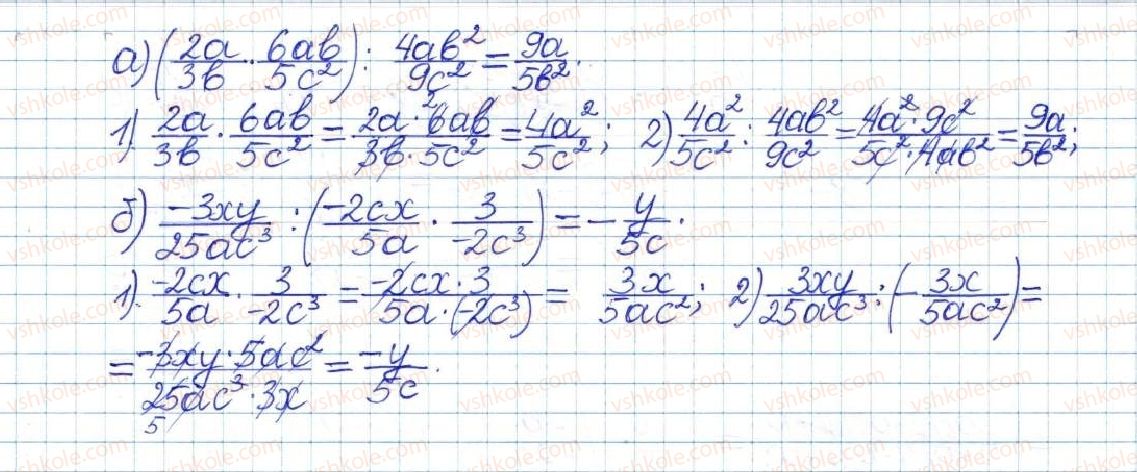 а) (2a/3b · 6ab/5c²) : 4ab²/9c² = 9a/5b².
1) 2a/3b · 6ab/5c² = 2a·²6ab/3b·5c² = 4a²/5c²; 2) 4a²/5c² : 4ab²/9c² = 4a²·9c²/5c²·4ab² = 9a/5b²;
б) -3xy/25ac³ : (-2cx/5a · 3/-2c³) = -y/5c.
1) -2cx/5a · 3/-2c³ = -2cx·3/5a·(-2c³) = 3x/5ac²; 2) 3xy/25ac³ : (-3x/5ac²) =
= -3xy·5ac²/25ac³·3x = -y/5c.
5
vshkole.com